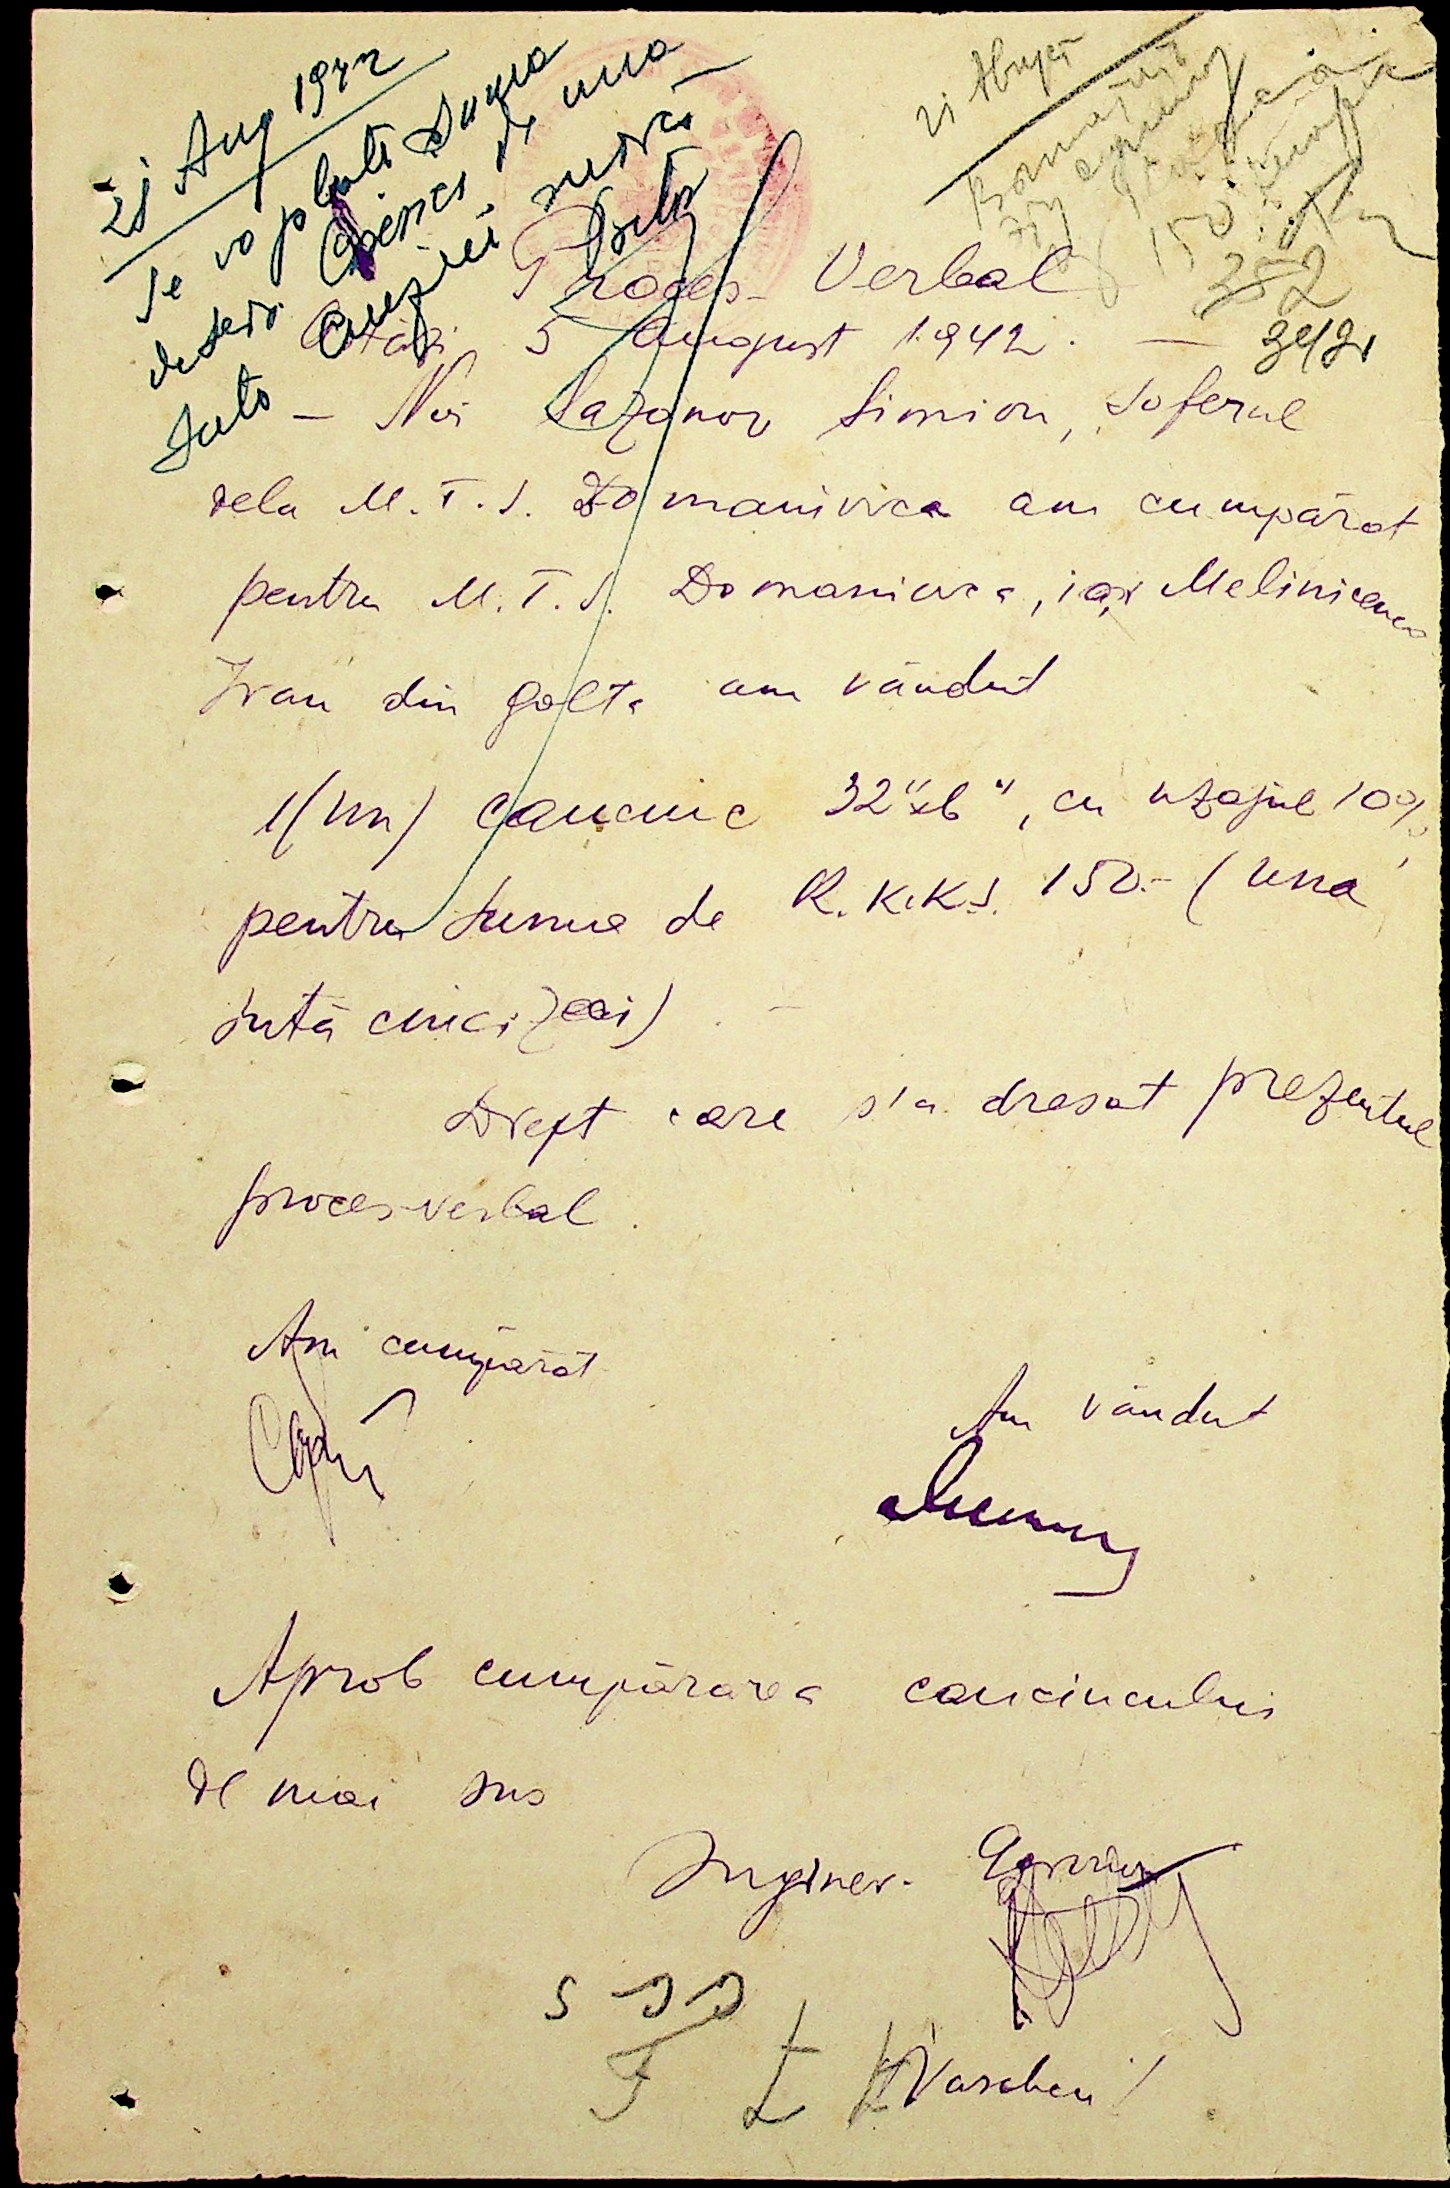 21 Aug 1942
Se va plati suma
de seria de una
suta cinzeci mărci
21 August
150
382
Proces-Verbal
Astăzi 5 August 1942. —
— Noi Sazonov Simion, Soferul
dela M.T.S. Domanivca am cumpărat
pentru M.T.S. Domanivca, iar Melinicenco
Ivan din Golta am vândut
1(un) cauciuc 32"x6", cu uzajul 10%
pentru suma de R.K.K.S. 150.- (una
sută cincizeci)
Drept care s'a dresat prezentul
proces-verbal.
Am cumpărat
Am vândut
Aprob cumpărarea cauciucului
de mai sus
Inginer.